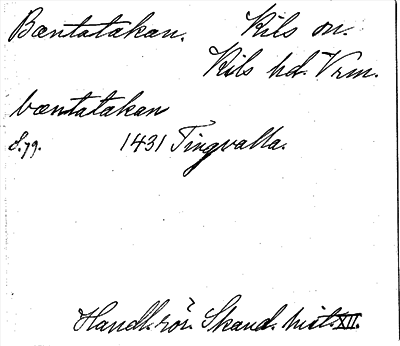 Bæntatakan. Kils sn.
Kils hd. Vrm.
bæntatakan
s. 79. 1431 Tingvalla.
Handl. rör. Skand. hist. XII.